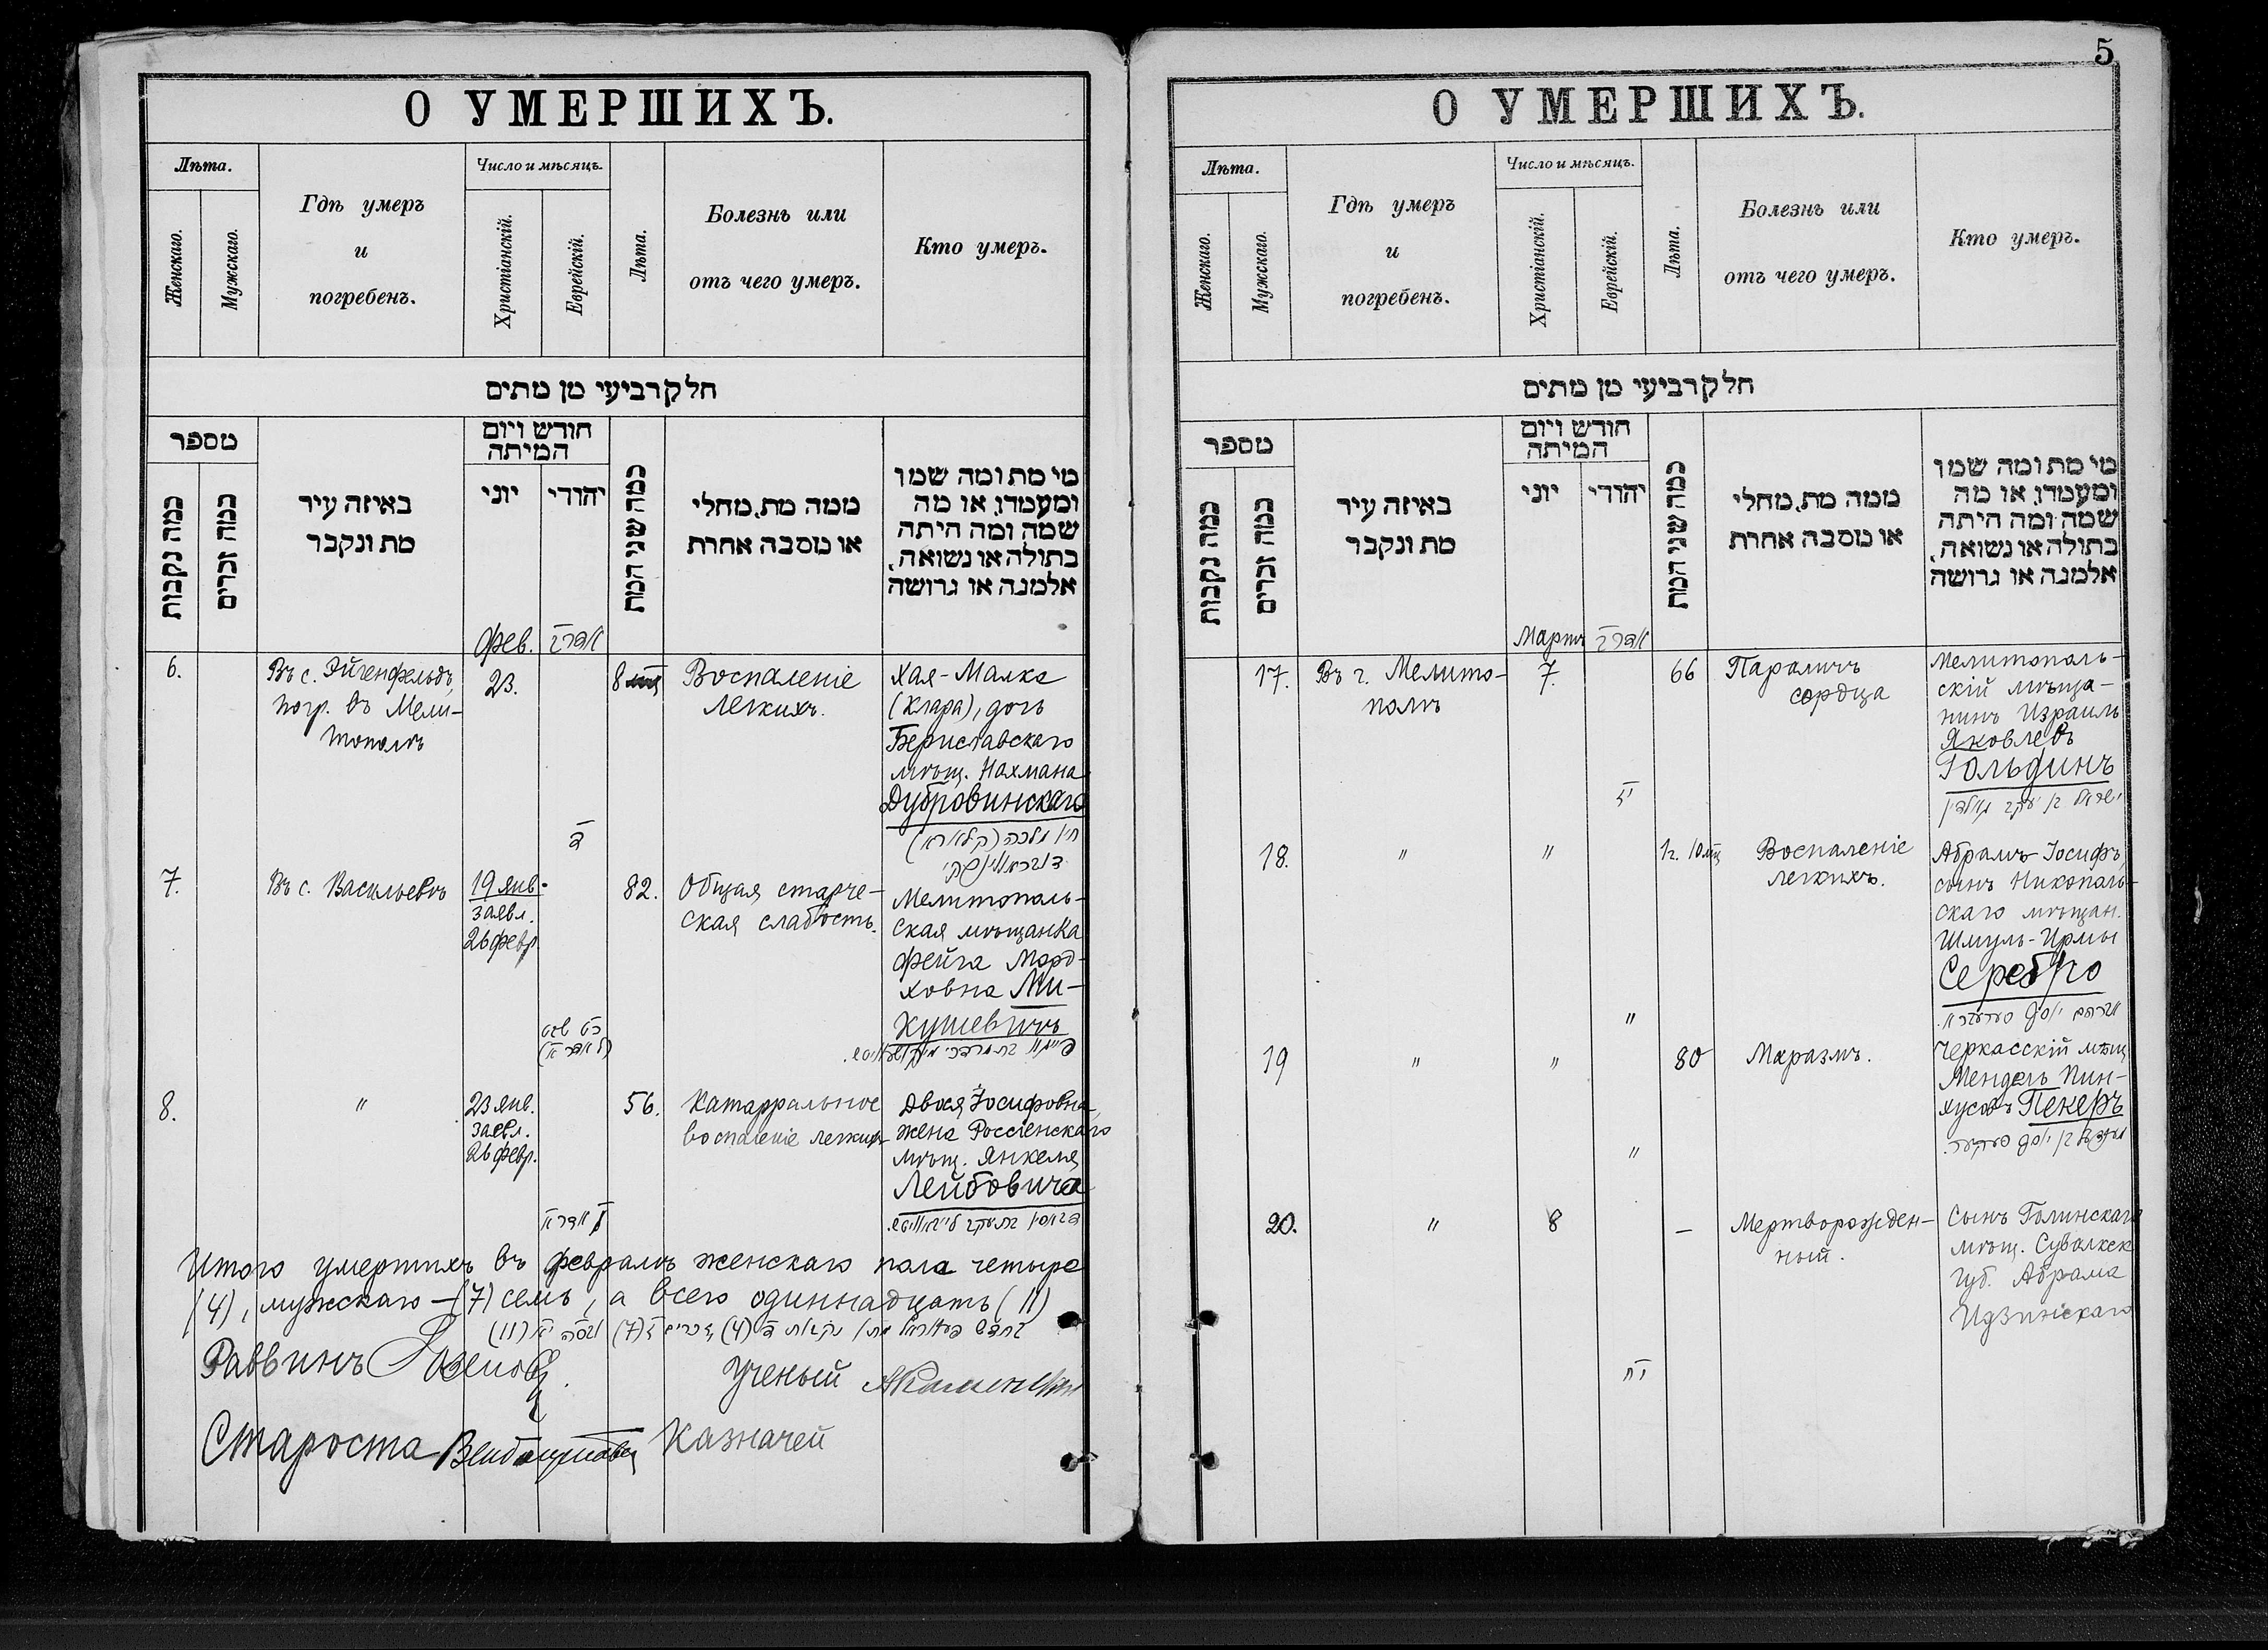 О УМЕРШИХЪ.
Лѣта.
Женскаго.
Мужскаго.
Гдѣ умеръ
и
погребенъ.
Число и мѣсяцъ.
Христіанскій.
Еврейскій.
Лѣта.
Болезнь или
отъ чего умеръ.
Кто умеръ.
חלק רביעי מן מתים
מספר
כמה נקבות
כמה זכרים
באיזה עיר
מת ונקבר
חודש ויום
המיתה
יוני
יהודי
כמה שני המת
ממה מת, מחלי
או מסבה אחרת
מי מת ומה שמו
ומעמדו, או מה
שמה ומה היתה
בתולה או נשואה,
אלמנה או גרושה
фев.
6.
Въ с. Эйгенфельдъ,
погр. въ Мели-
тополѣ
23.
ד
8
Воспаленіе
легкихъ.
Хая-Малка
(Клара), дочь
Бериславскаго
мѣщ. Нахмана
Дубровинскаго
חיה מלכה (קלארא)
7.
Въ с. Васильевкѣ
19 янв.
заявл.
26 февр.
כט שבט
82.
Общая старче-
ская слабость.
Мелитополь-
ская мѣщанка
Фейга Морд-
ховна Ми-
кушевичъ
8.
"
23 янв.
заявл.
26 февр.
56.
Катарральное
воспаленіе легкихъ
Двося Іосифовна,
жена Россіенскаго
мѣщ. Янкеля
Лейбовича
Итого умершихъ въ февралѣ женскаго пола четыре
(4), мужскаго - (7) семь, а всего одиннадцать (11)
(4) (7) (11)
Раввинъ
Ученый
Староста
Казначей
5
О УМЕРШИХЪ.
Лѣта.
Женскаго.
Мужскаго.
Гдѣ умеръ
и
погребенъ.
Число и мѣсяцъ.
Христіанскій.
Еврейскій.
Лѣта.
Болезнь или
отъ чего умеръ.
Кто умеръ.
חלק רביעי מן מתים
מספר
כמה נקבות
כמה זכרים
באיזה עיר
מת ונקבר
חודש ויום
המיתה
יוני
יהודי
כמה שני המת
ממה מת, מחלי
או מסבה אחרת
מי מת ומה שמו
ומעמדו, או מה
שמה ומה היתה
בתולה או נשואה,
אלמנה או גרושה
Мартъ
17.
Въ г. Мелито-
полѣ
7.
66
Параличъ
сердца
Мелитополь-
скій мѣща-
нинъ Израиль
Яковлевъ
Гольдинъ
ישראל בן יעקב גאלדין
18.
"
"
"
1г. 10 мѣс
Воспаленіе
легкихъ.
Абрамъ-Іосифъ,
сынъ Никополь-
скаго мѣщан.
Шмуль-Ирмы
Серебро
19
"
"
"
80
Маразмъ.
Черкасскій мѣщ
Мендель Пин-
хусовъ Пекеръ
20.
"
8
יח
—
Мертворожден-
ный.
Сынъ
мѣщ. Сувалкск
губ. Абрама